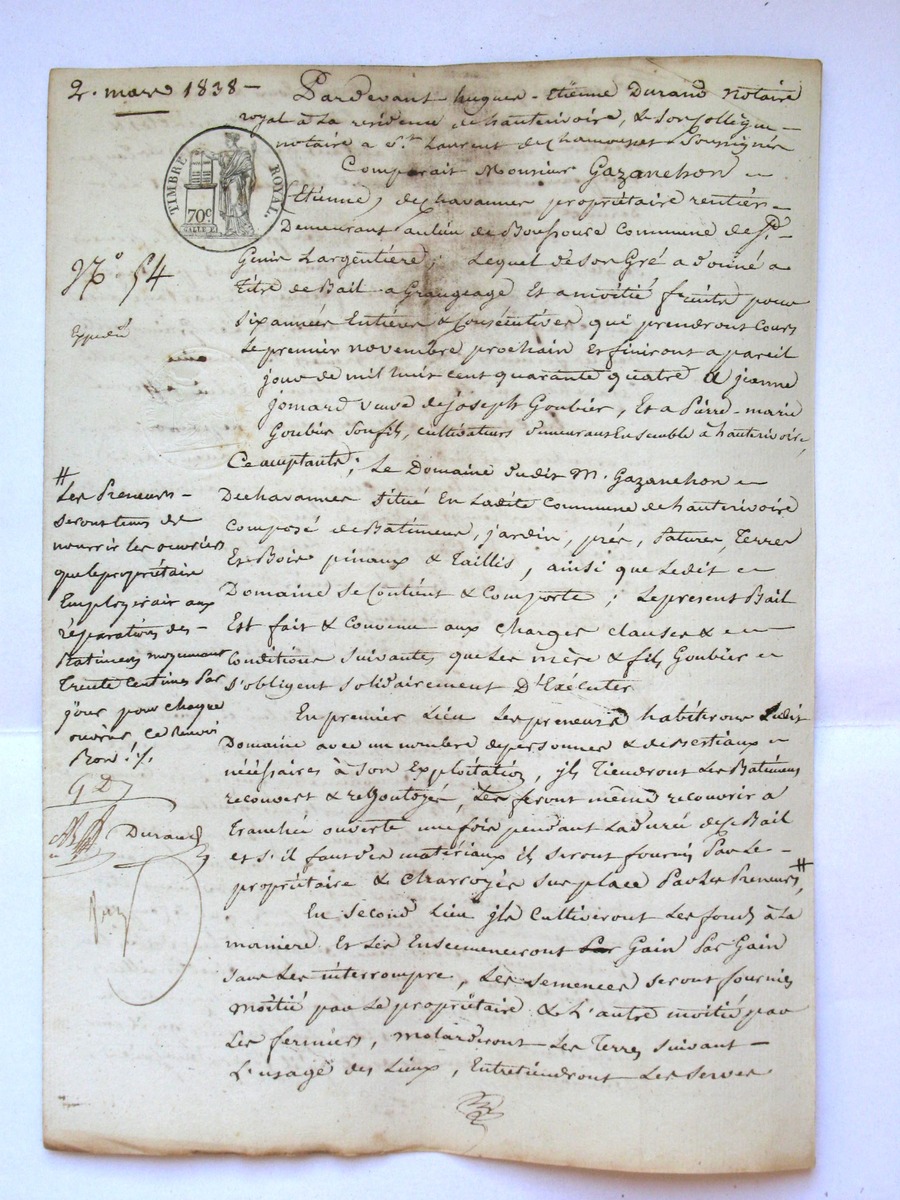 2. mars 1838 -
Pardevant hugues - Etienne Durand Notaire
royal à la residence de hauterivoire, & son collègue -
notaire a St. Laurent de chamousset Soussignés
Comparait Monsieur Gazanchon -
(Etienne) dechavannes propriétaire rentier -
TIMBRE ROYAL.
70c
Demeurant au lieu de Commune de St.
Genis Largentière; Lequel de son Gré a donné a
N.° 54
Titre de Bail a Grangeage Et a moitié fruits pour
Six années Entières & Consécutives qui prendront Cours
Expedié
Le premier novembre prochain Et finiront a pareil
jour de mil huit cent quarante quatre a jeanne
jomard veuve de joseph Goubier, Et a Pierre - marie
Goubier Son fils, cultivateurs demeurant Ensemble à hauterivoire,
Ce acceptants; Le Domaine dudit M. Gazanchon -
Dechavannes Situé En Ladite Commune de hauterivoire
Composé de Batiments, jardin, prés, Patures, Terres
Et Bois pinaux & Taillis, ainsi que Ledit -
Domaine Se Contient & Comporte; Le present Bail
Est fait & convenu aux charges clauses & -
Conditions Suivantes que Les mère & fils Goubier -
S'obligent Solidairement D'Exécuter
#
Les Preneurs -
Seront tenus de
nourrir les ouvriers
que le propriétaire
Employerait aux
réparations des -
Batiments moyennant
trente Centimes Par
jour pour chaque
ouvrier, ce Renvoi
Bon ./.
G D
Durand
En premier Lieu Les preneurs habiteront Ledit
Domaine avec un nombre de personnes & de Bestiaux -
nécéssaires à Son Exploitation, jls Tiendront Les Batiments
recouvert & regoutoyés, Les feront même recouvrir a
tranchée ouverte une fois pendant La durée de ce Bail
et s'il faut des matériaux ils Seront fournis Par Le -
propriétaire & Charroyés Sur place Par Les Preneurs, #
En Second Lieu jls Cultiveront Les fonds à La
manière Et Les Ensemenceront Gain Par Gain
Sans Les interrompre, Les Semences Seront fournies
moitié par Le propriétaire & L'autre moitié par
Les fermiers, Les Terres Suivant -
L'usage des Lieux, Entretiendront Les Serves